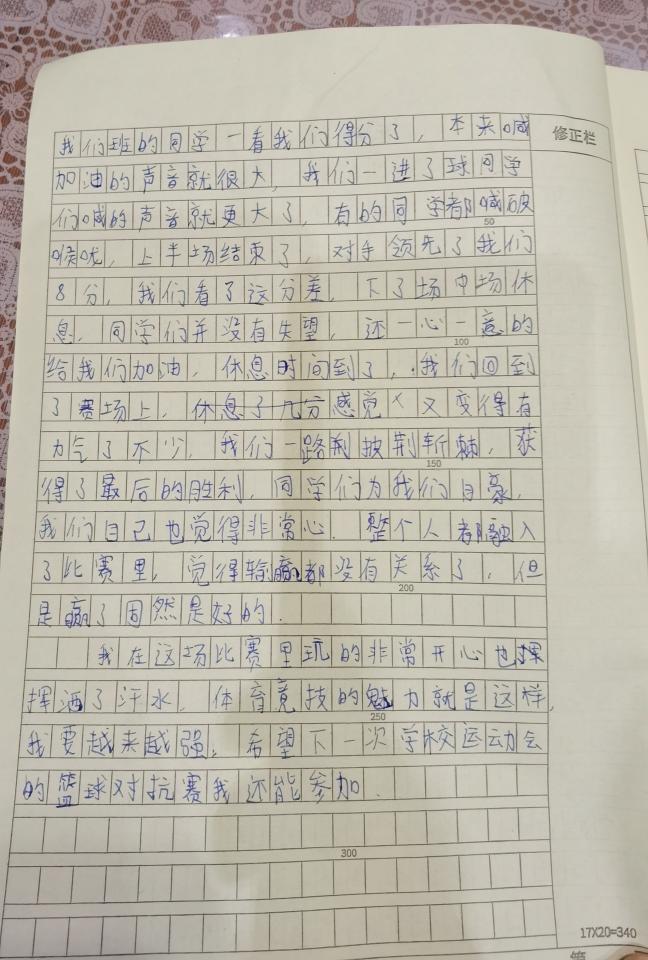 我们班的同学一看我们得分了，本来喊
修正栏
加油的声音就很大，我们一进了球同学
们喊的声音就更大了，有的同学都喊破
50
喉咙，上半场结束了，对手领先了我们
8分，我们看了这分差，下了场中场休
息，同学们并没有失望，还一心一意的
100
给我们加油，休息时间到了，我们回到
了赛场上，休息了几分感觉又变得有
力气了不少，我们一路荆披荆斩棘，获
150
得了最后的胜利，同学们为我们自豪，
我们自己也觉得非常心．整个人都融入
了比赛里，觉得输赢都没有关系了，但
200
是赢了固然是好的．
我在这场比赛里玩的非常开心也挥
挥洒了汗水，体育竞技的魅力就是这样，
250
我要越来越强，希望下一次学校运动会
的篮球对抗赛我还能参加．
300
17X20=340